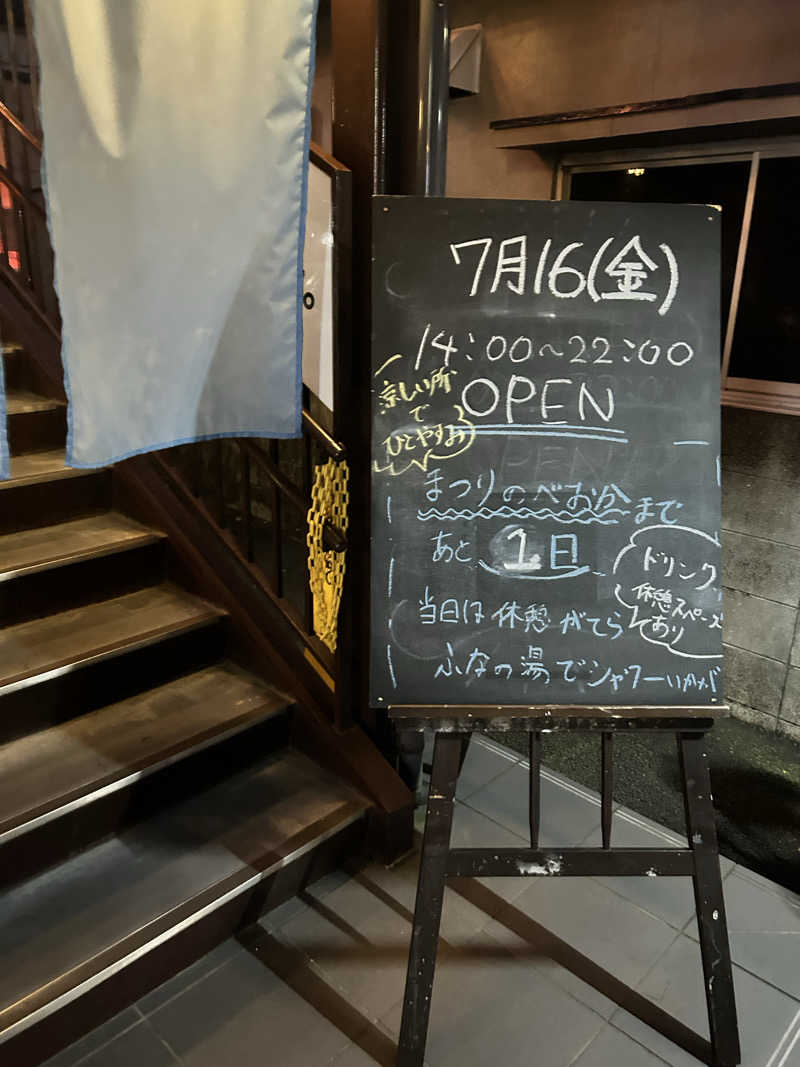 7月16(金)
14:00~22:00
OPEN
涼しい所
で
ひとやすみ
まつりのべおかまで
あと1日
ドリンク
休憩スペース
あり
当日は休憩がてら
ふなの湯でシャワーいかが